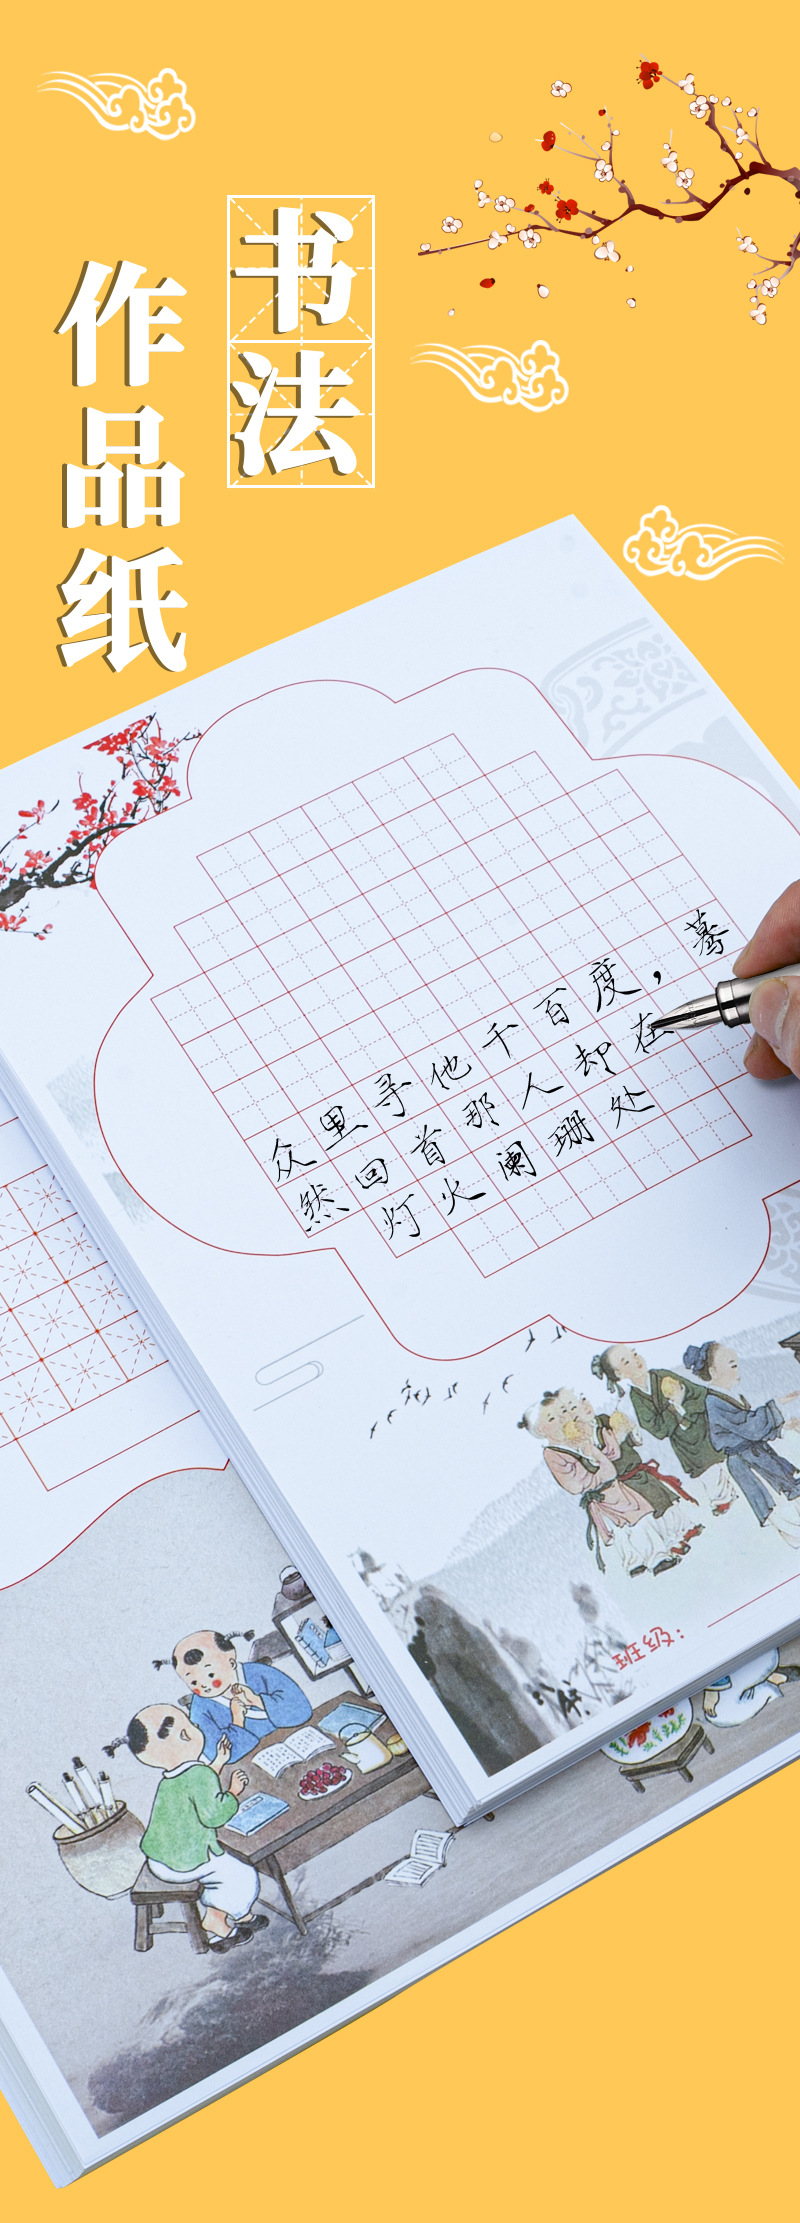 书法
作品纸
众里寻他千百度，蓦
然回首那人却在
灯火阑珊处
班级：